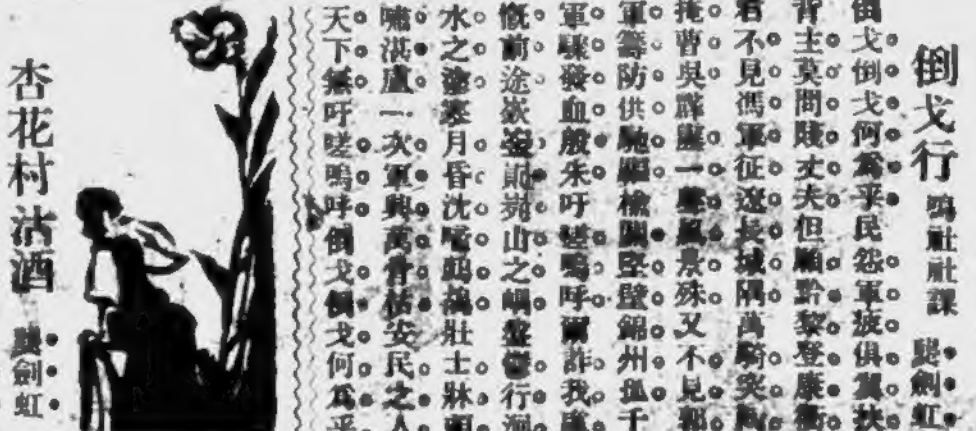 倒戈行 鳴社社課 騕劍虹
倒戈倒戈何為乎民怨軍疲俱冀扶
背主莫問賤丈夫但願黔黎登康衢
君不見馮軍征遼長城隅萬騎突
掩曹吳 一 風景殊又不見郭
軍籌防供馳驅檢關堅壁錦州孤千
軍驟發血般朱吁嗟嗚呼爾詐我
慨前途嶔 山之 盤鬱行
水之 月昏沈 壯士牀頭
嘯湛盧一次軍興萬骨枯安民之人
天下無吁嗟嗚呼倒戈倒戈何為乎
杏花村沽酒 劍虹